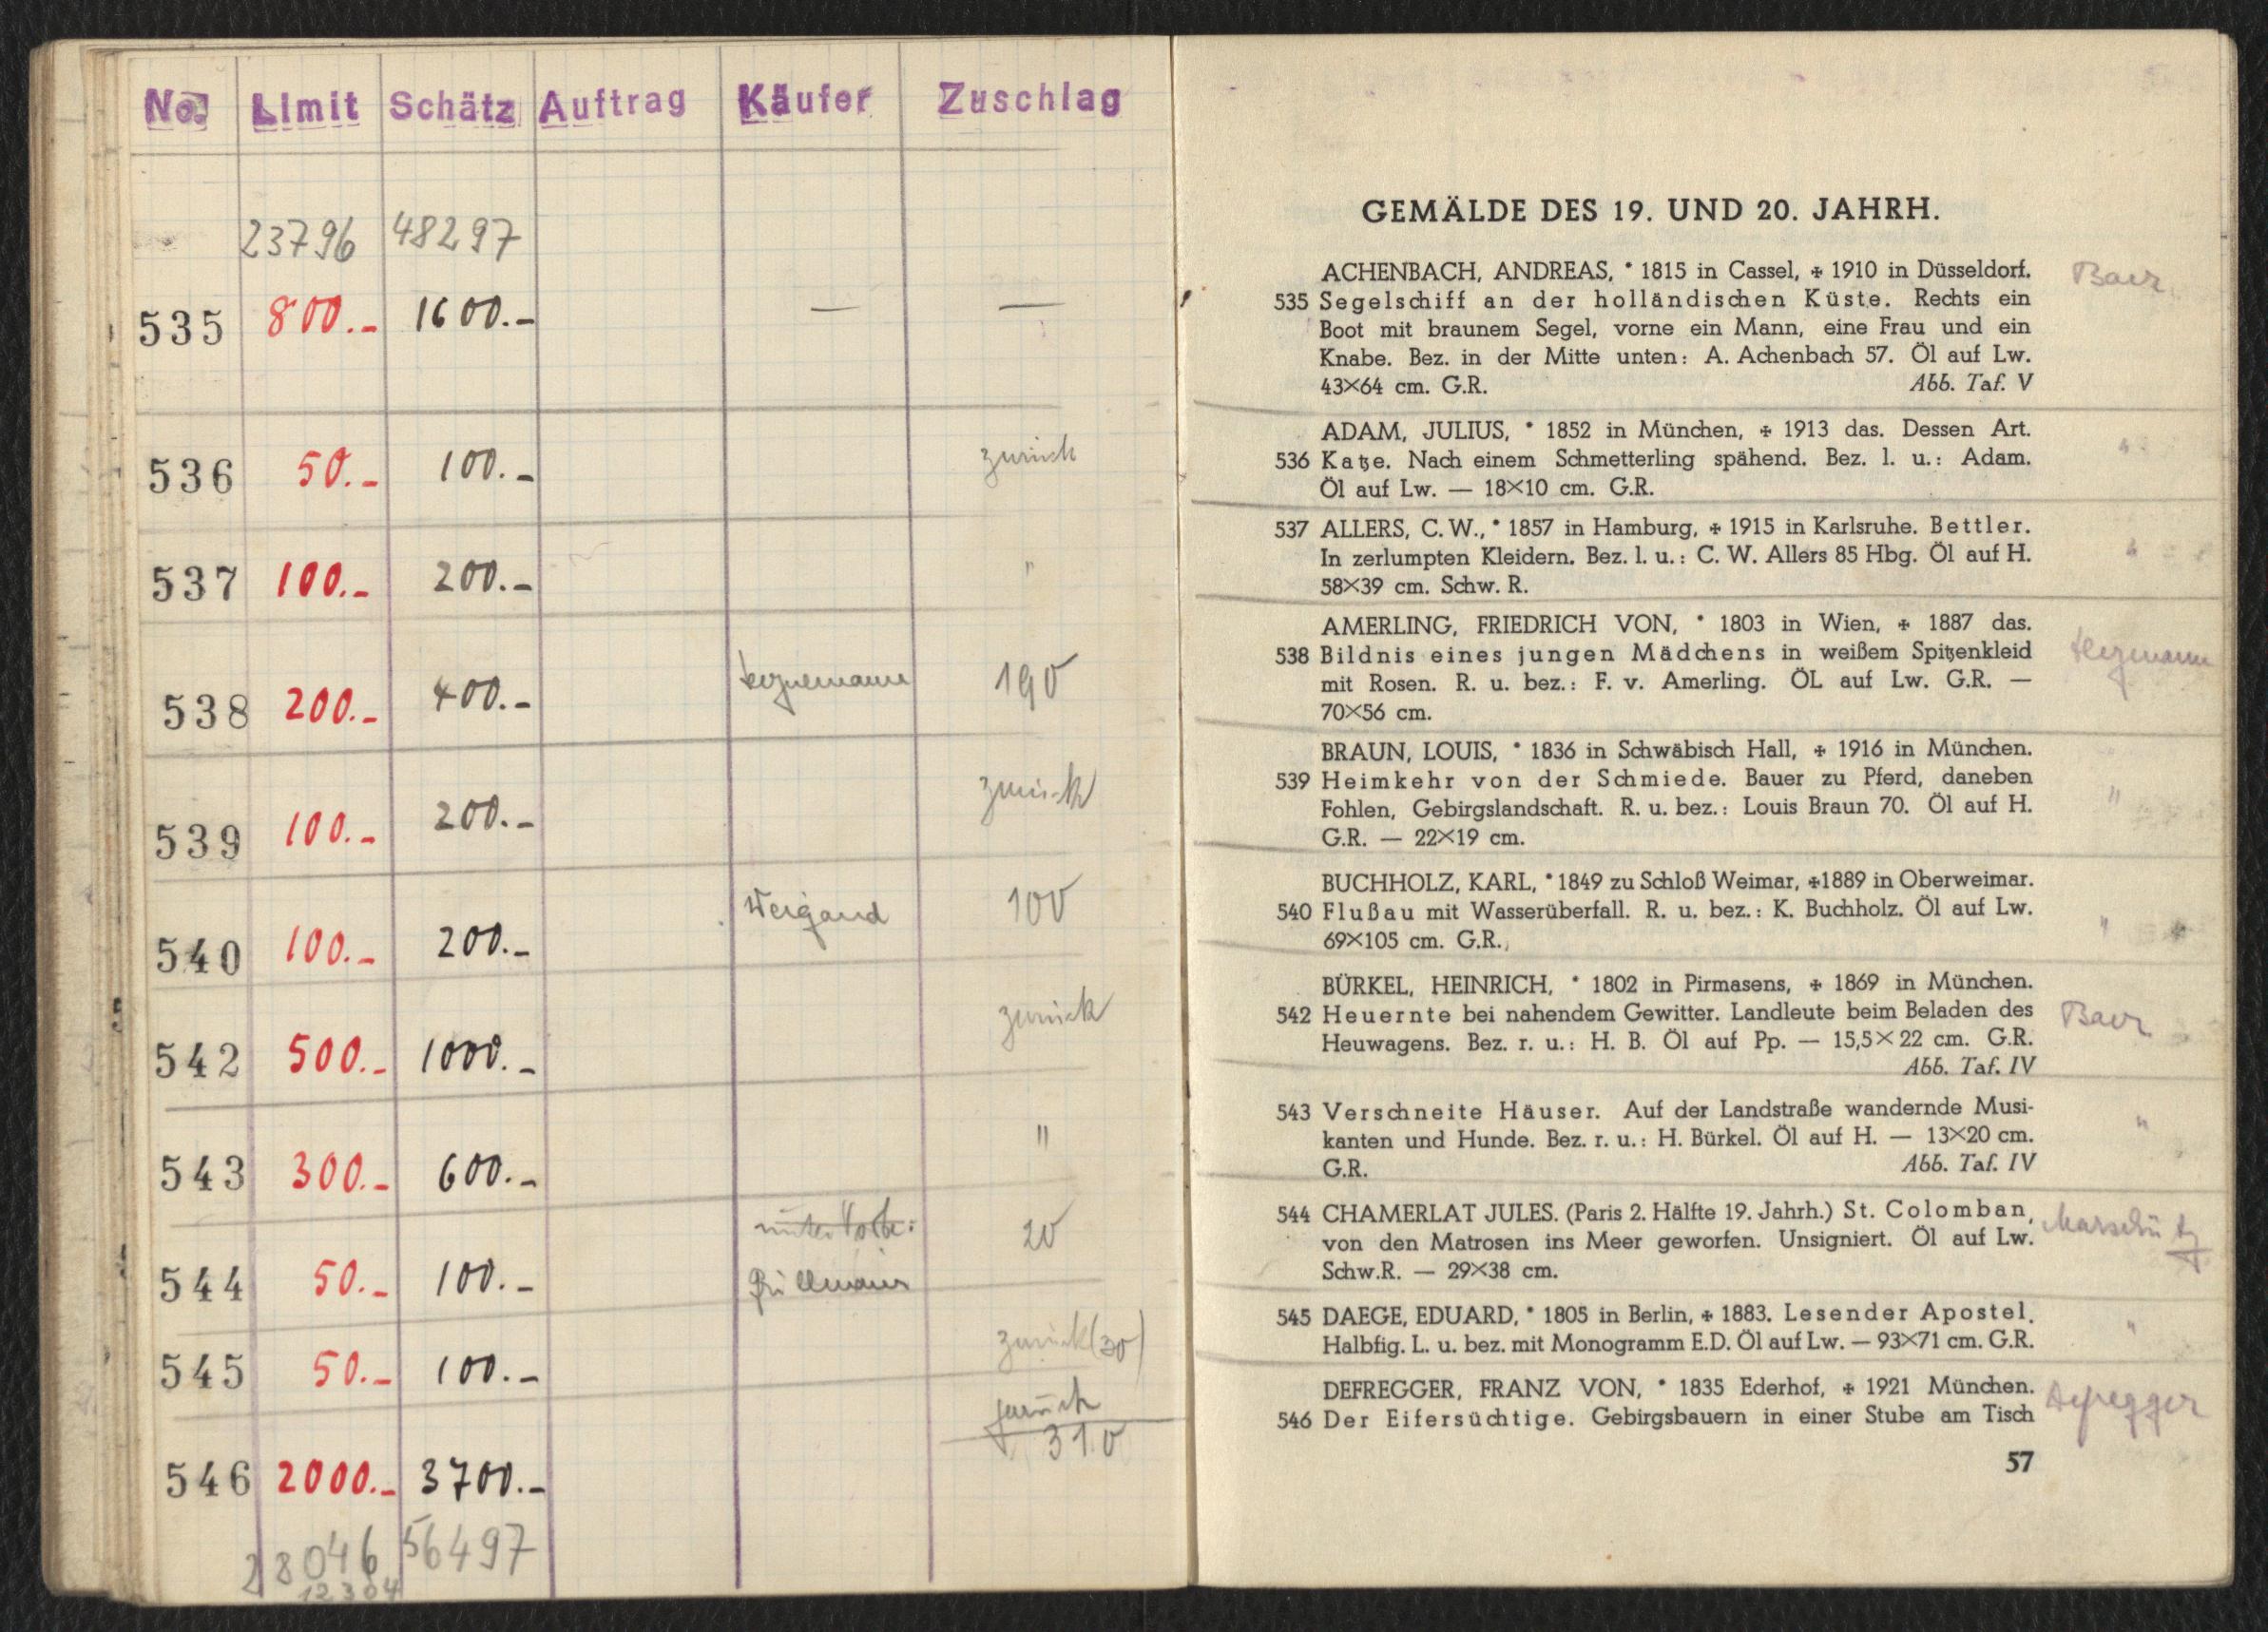 No. Limit Schätz Auftrag Käufer Zuschlag
23796 48297
535 800.- 1600.- — —
536 50.- 100.- zurück
537 100.- 200.- "
538 200.- 400.- 190
539 100.- 200.- zurück
540 100.- 200.- Weigand 100
542 500.- 1000.- zurück
543 300.- 600.- "
544 50.- 100.- 20
545 50.- 100.- zurück (30)
zurück
546 2000.- 3700.- 310
28046 56497
12304
GEMÄLDE DES 19. UND 20. JAHRH.
ACHENBACH, ANDREAS, * 1815 in Cassel, ✠ 1910 in Düsseldorf.
535 Segelschiff an der holländischen Küste. Rechts ein
Boot mit braunem Segel, vorne ein Mann, eine Frau und ein
Knabe. Bez. in der Mitte unten: A. Achenbach 57. Öl auf Lw.
43×64 cm. G.R. Abb. Taf. V
ADAM, JULIUS, * 1852 in München, ✠ 1913 das. Dessen Art.
536 Katze. Nach einem Schmetterling spähend. Bez. l. u.: Adam.
Öl auf Lw. — 18×10 cm. G.R.
537 ALLERS, C. W., * 1857 in Hamburg, ✠ 1915 in Karlsruhe. Bettler.
In zerlumpten Kleidern. Bez. l. u.: C. W. Allers 85 Hbg. Öl auf H.
58×39 cm. Schw. R.
AMERLING, FRIEDRICH VON, * 1803 in Wien, ✠ 1887 das.
538 Bildnis eines jungen Mädchens in weißem Spitzenkleid
mit Rosen. R. u. bez.: F. v. Amerling. ÖL auf Lw. G.R. —
70×56 cm.
BRAUN, LOUIS, * 1836 in Schwäbisch Hall, ✠ 1916 in München.
539 Heimkehr von der Schmiede. Bauer zu Pferd, daneben
Fohlen, Gebirgslandschaft. R. u. bez.: Louis Braun 70. Öl auf H. "
G.R. — 22×19 cm.
BUCHHOLZ, KARL, * 1849 zu Schloß Weimar, ✠1889 in Oberweimar.
540 Flußau mit Wasserüberfall. R. u. bez.: K. Buchholz. Öl auf Lw. "
69×105 cm. G.R.
BÜRKEL, HEINRICH, * 1802 in Pirmasens, ✠ 1869 in München.
542 Heuernte bei nahendem Gewitter. Landleute beim Beladen des
Heuwagens. Bez. r. u.: H. B. Öl auf Pp. — 15,5×22 cm. G.R.
Abb. Taf. IV
543 Verschneite Häuser. Auf der Landstraße wandernde Musi- "
kanten und Hunde. Bez. r. u.: H. Bürkel. Öl auf H. — 13×20 cm.
G.R. Abb. Taf. IV
544 CHAMERLAT JULES. (Paris 2. Hälfte 19. Jahrh.) St. Colomban, Marschütz
von den Matrosen ins Meer geworfen. Unsigniert. Öl auf Lw.
Schw.R. — 29×38 cm.
545 DAEGE, EDUARD, * 1805 in Berlin, ✠ 1883. Lesender Apostel. "
Halbfig. L. u. bez. mit Monogramm E.D. Öl auf Lw. — 93×71 cm. G.R.
DEFREGGER, FRANZ VON, * 1835 Ederhof, ✠ 1921 München. Defregger
546 Der Eifersüchtige. Gebirgsbauern in einer Stube am Tisch
57